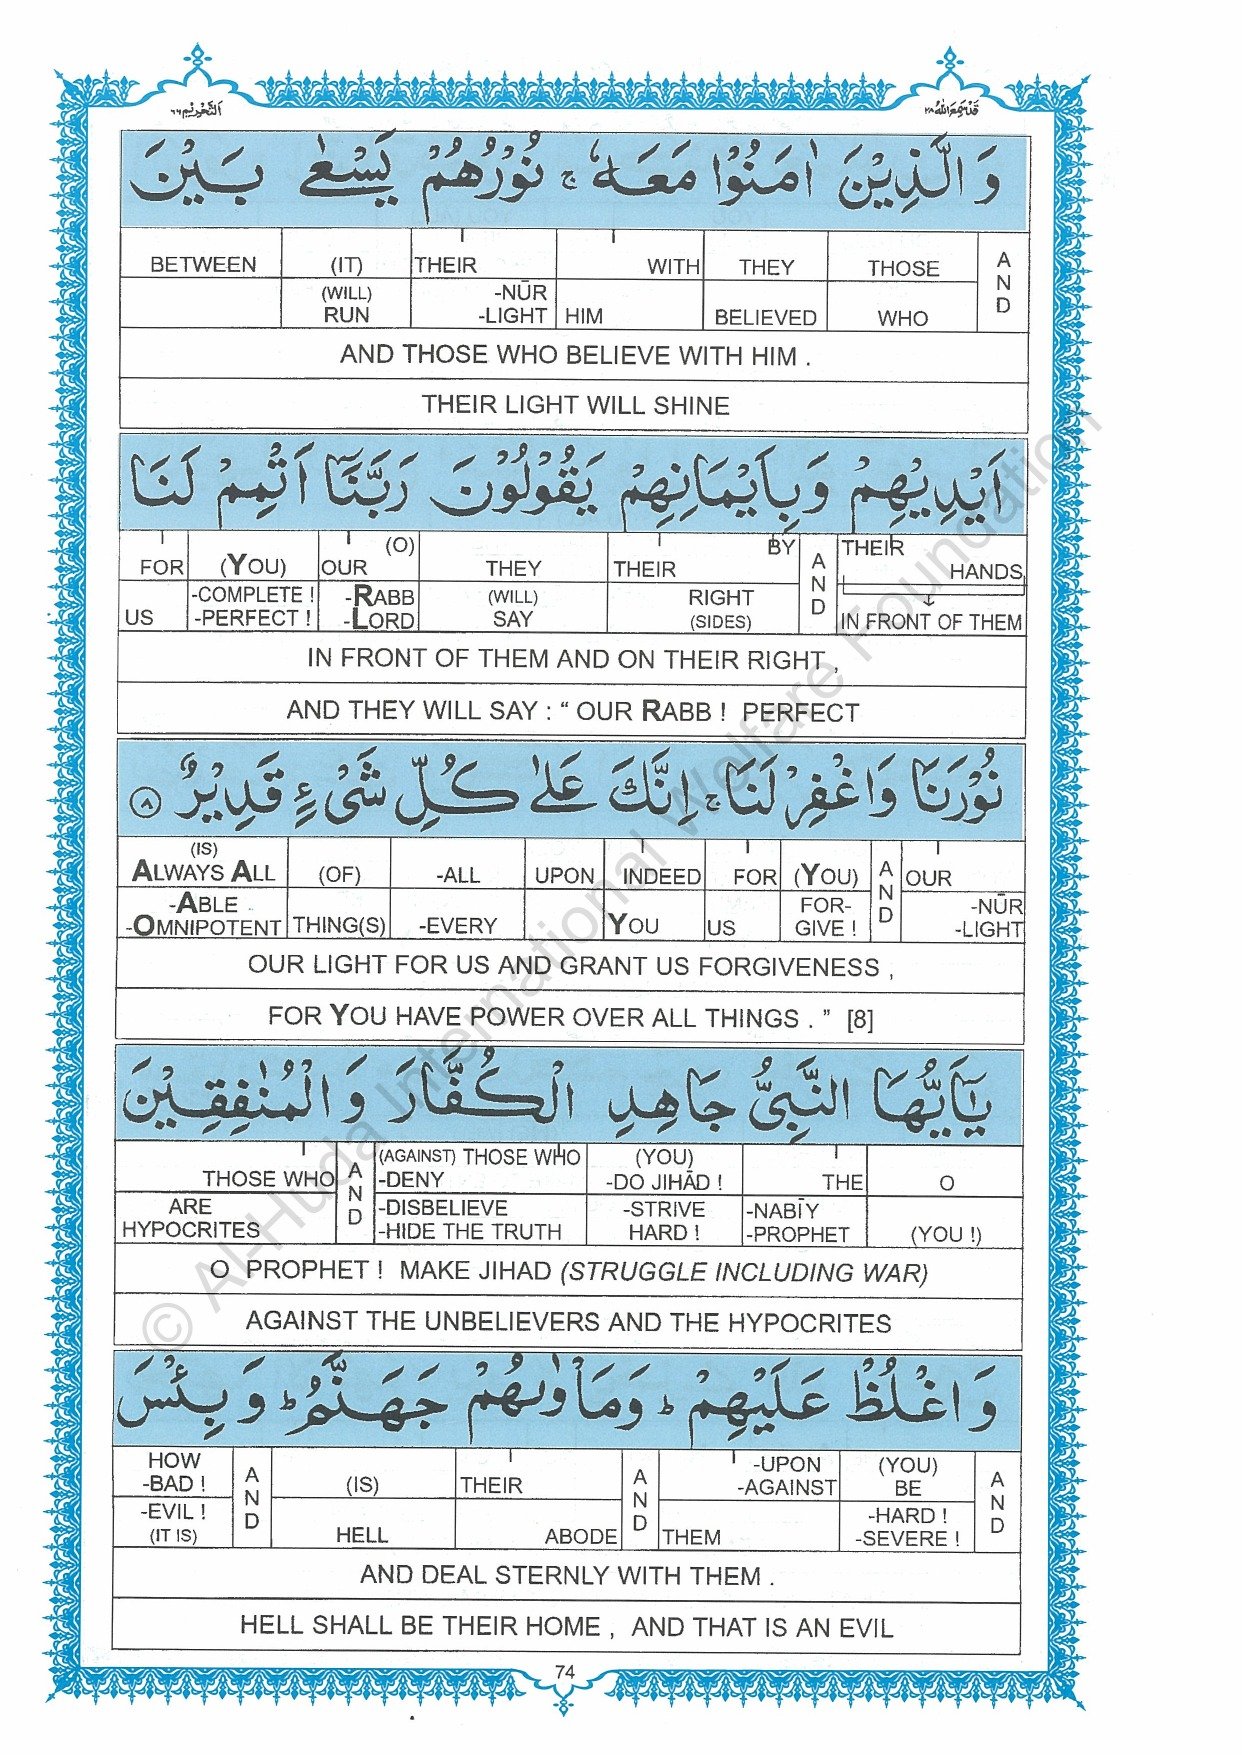 التحريم ٦٦
قد سمع الله ٢٨
وَالَّذِيْنَ اٰمَنُوْا مَعَهٗ ۚ نُوْرُهُمْ يَسْعٰى بَيْنَ
BETWEEN (IT) THEIR WITH THEY THOSE AND
(WILL) RUN -NŪR -LIGHT HIM BELIEVED WHO
AND THOSE WHO BELIEVE WITH HIM .
THEIR LIGHT WILL SHINE
اَيْدِيْهِمْ وَبِاَيْمَانِهِمْ يَقُوْلُوْنَ رَبَّنَآ اَتْمِمْ لَنَا
FOR (YOU) OUR (O) THEY THEIR BY AND THEIR HANDS
US -COMPLETE ! -PERFECT ! -RABB -LORD (WILL) SAY RIGHT (SIDES) IN FRONT OF THEM
IN FRONT OF THEM AND ON THEIR RIGHT ,
AND THEY WILL SAY : “ OUR RABB ! PERFECT
نُوْرَنَا وَاغْفِرْ لَنَا ۚ اِنَّكَ عَلٰى كُلِّ شَيْءٍ قَدِيْرٌ ۝٨
(IS) ALWAYS ALL (OF) -ALL UPON INDEED FOR (YOU) AND OUR
-ABLE -OMNIPOTENT THING(S) -EVERY YOU US FOR- GIVE ! -NŪR -LIGHT
OUR LIGHT FOR US AND GRANT US FORGIVENESS ,
FOR YOU HAVE POWER OVER ALL THINGS . ” [8]
يٰٓاَيُّهَا النَّبِيُّ جَاهِدِ الْكُفَّارَ وَالْمُنٰفِقِيْنَ
THOSE WHO AND (AGAINST) THOSE WHO -DENY (YOU) -DO JIHĀD ! THE O
ARE HYPOCRITES -DISBELIEVE -HIDE THE TRUTH -STRIVE HARD ! -NABĪY -PROPHET (YOU !)
O PROPHET ! MAKE JIHAD (STRUGGLE INCLUDING WAR)
AGAINST THE UNBELIEVERS AND THE HYPOCRITES
وَاغْلُظْ عَلَيْهِمْ ؕ وَمَاْوٰىهُمْ جَهَنَّمُ ؕ وَبِئْسَ
HOW -BAD ! AND (IS) THEIR AND -UPON -AGAINST (YOU) BE AND
-EVIL ! (IT IS) HELL ABODE THEM -HARD ! -SEVERE !
AND DEAL STERNLY WITH THEM .
HELL SHALL BE THEIR HOME , AND THAT IS AN EVIL
74
© Al-Huda International Welfare Foundation